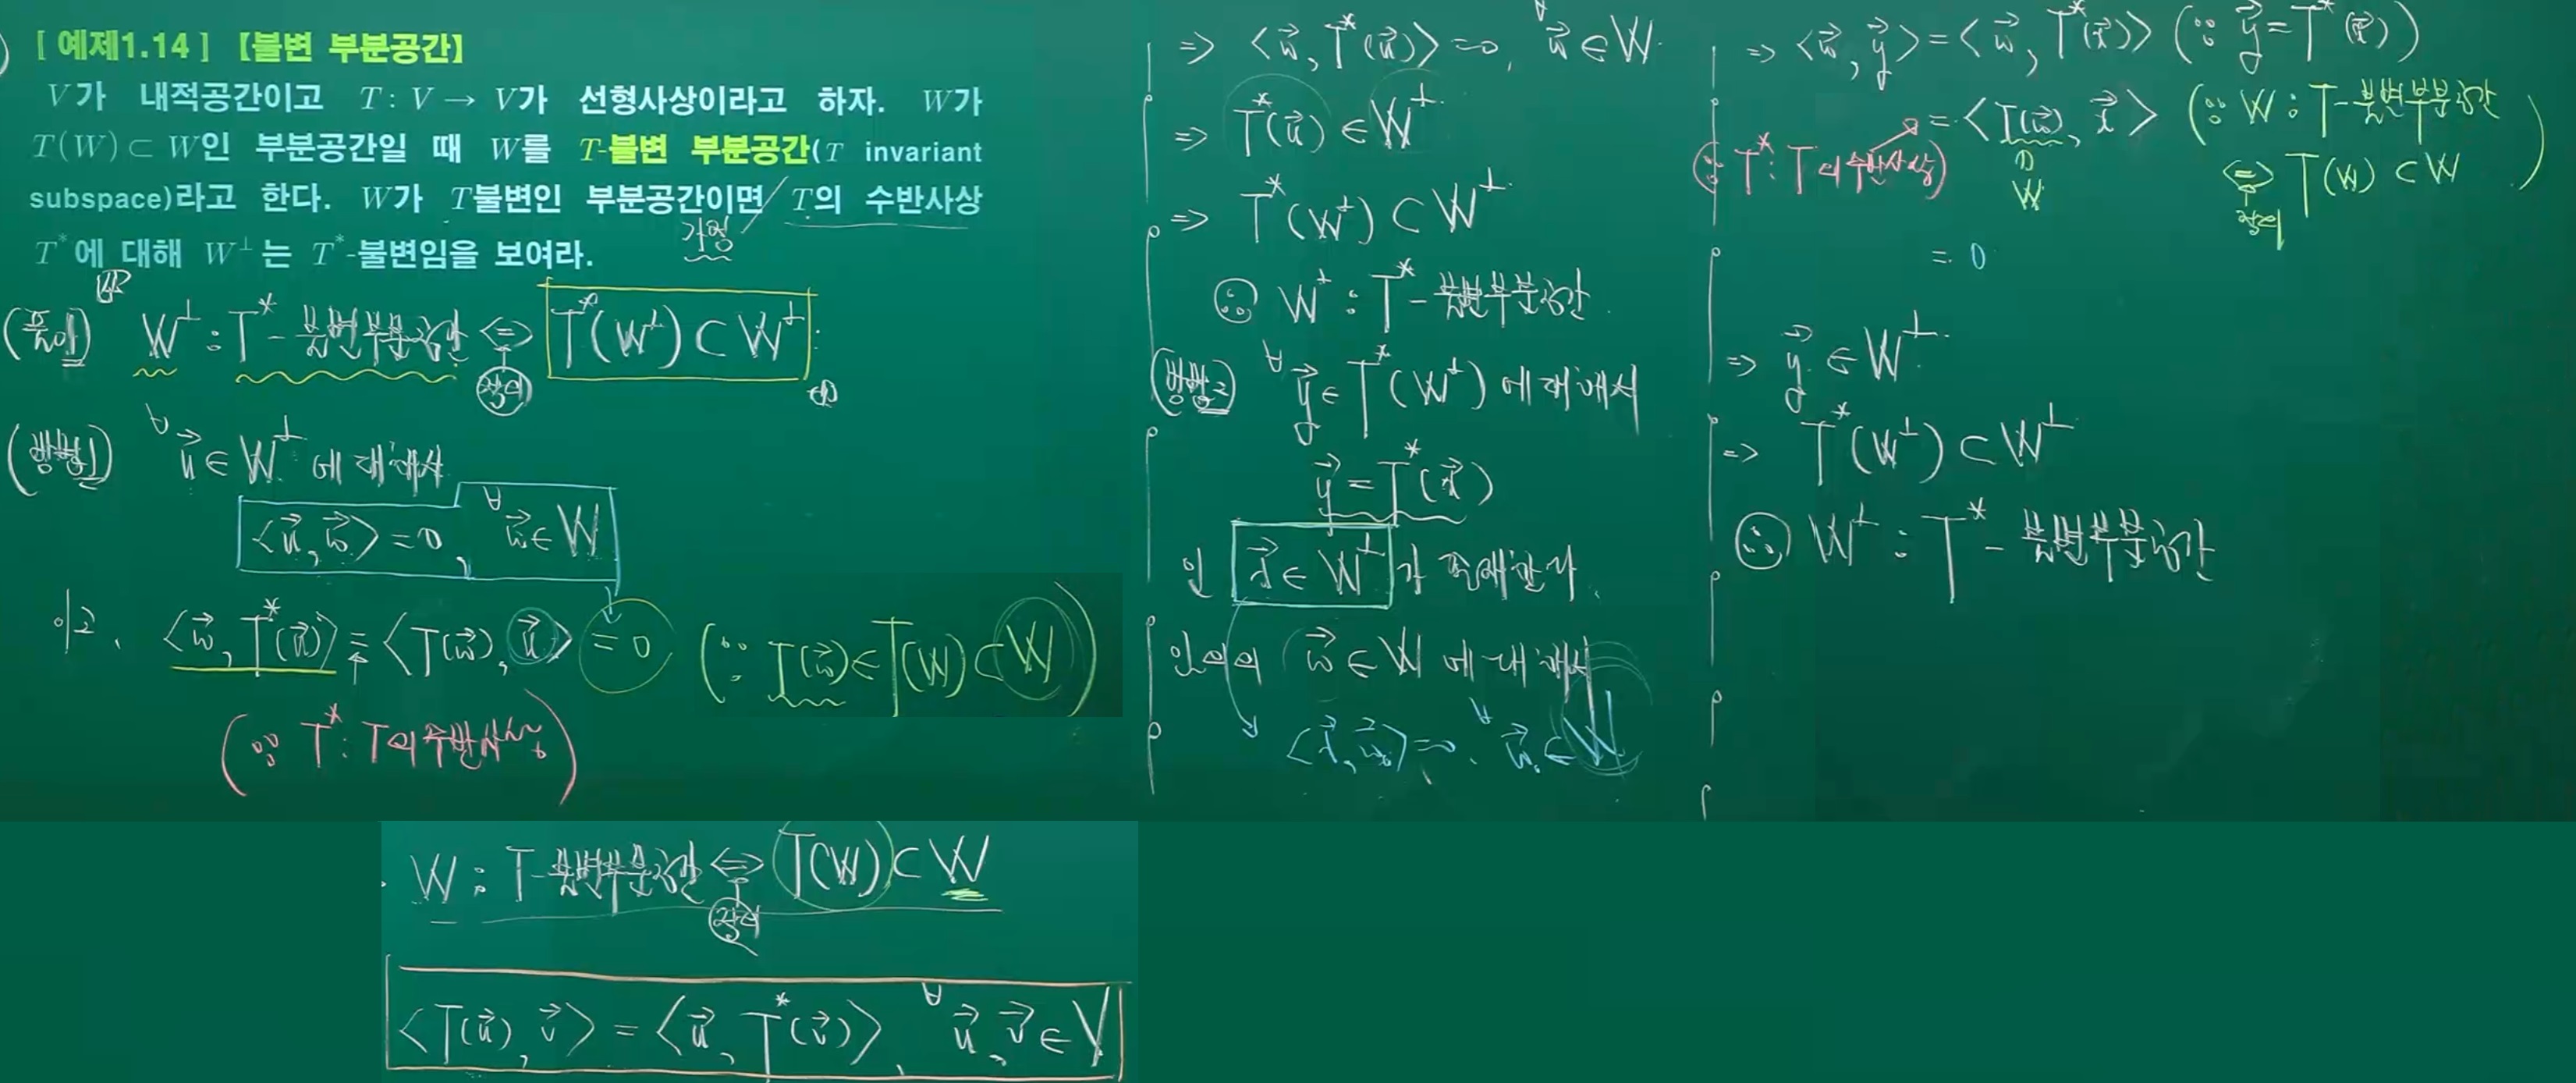 [ 예제1.14 ] 【불변 부분공간】
V가 내적공간이고 T : V → V가 선형사상이라고 하자. W가
T(W) ⊂ W인 부분공간일 때 W를 T-불변 부분공간(T invariant
subspace)라고 한다. W가 T불변인 부분공간이면 T의 수반사상
가정
T*에 대해 W⊥는 T*-불변임을 보여라.
(풀이) W⊥ : T* - 불변부분공간 ⇔ T*(W⊥) ⊂ W⊥
정의
(방법1) ∀u⃗ ∈ W⊥ 에 대해서
<u⃗, w⃗> = 0, ∀w⃗ ∈ W
이고, <w⃗, T*(u⃗)> = <T(w⃗), u⃗> = 0 (∵ T(w⃗) ∈ T(W) ⊂ W)
(∵ T* : T의 수반사상)
W : T-불변부분공간 ⇔ T(W) ⊂ W
정의
<T(u⃗), v⃗> = <u⃗, T*(v⃗)>, ∀u⃗, v⃗ ∈ V
⇒ <w⃗, T*(u⃗)> = 0, ∀w⃗ ∈ W.
⇒ T*(u⃗) ∈ W⊥.
⇒ T*(W⊥) ⊂ W⊥.
∴ W⊥ : T* - 불변부분공간.
(방법2) ∀y⃗ ∈ T*(W⊥) 에 대해서
y⃗ = T*(x⃗)
인 x⃗ ∈ W⊥ 가 존재한다.
임의의 w⃗ ∈ W 에 대해서
<x⃗, w⃗> = 0, ∀w⃗ ∈ W
⇒ <w⃗, y⃗> = <w⃗, T*(x⃗)> (∵ y⃗ = T*(x⃗))
= <T(w⃗), x⃗> (∵ W : T-불변부분공간
(∵ T* : T의 수반사상)
W
⇔ T(W) ⊂ W)
정의
= 0
⇒ y⃗ ∈ W⊥.
⇒ T*(W⊥) ⊂ W⊥
∴ W⊥ : T* - 불변부분공간